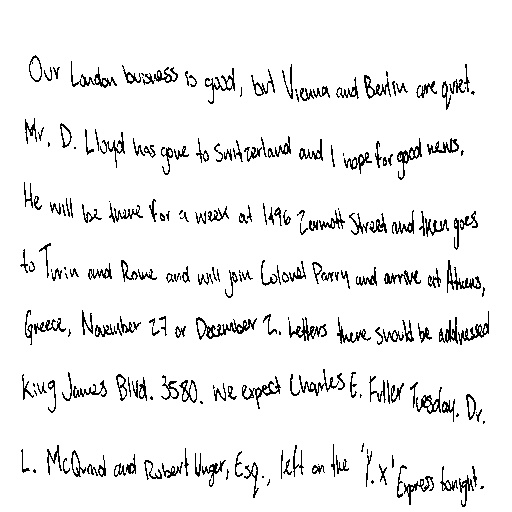 Our London business is good, but Vienna and Berlin are quiet.
Mr. D. Lloyd has gone to Switzerland and I hope for good news.
He will be there for a week at 1496 Zermott Street and then goes
to Turin and Rome and will join Colonel Parry and arrive at Athens,
Greece, November 27 or December 2. Letters there should be addressed
King James Blvd. 3580. We expect Charles E. Fuller Tuesday. Dr.
L. McQuaid and Robert Unger, Esq., left on the 'Y.X' Express tonight.